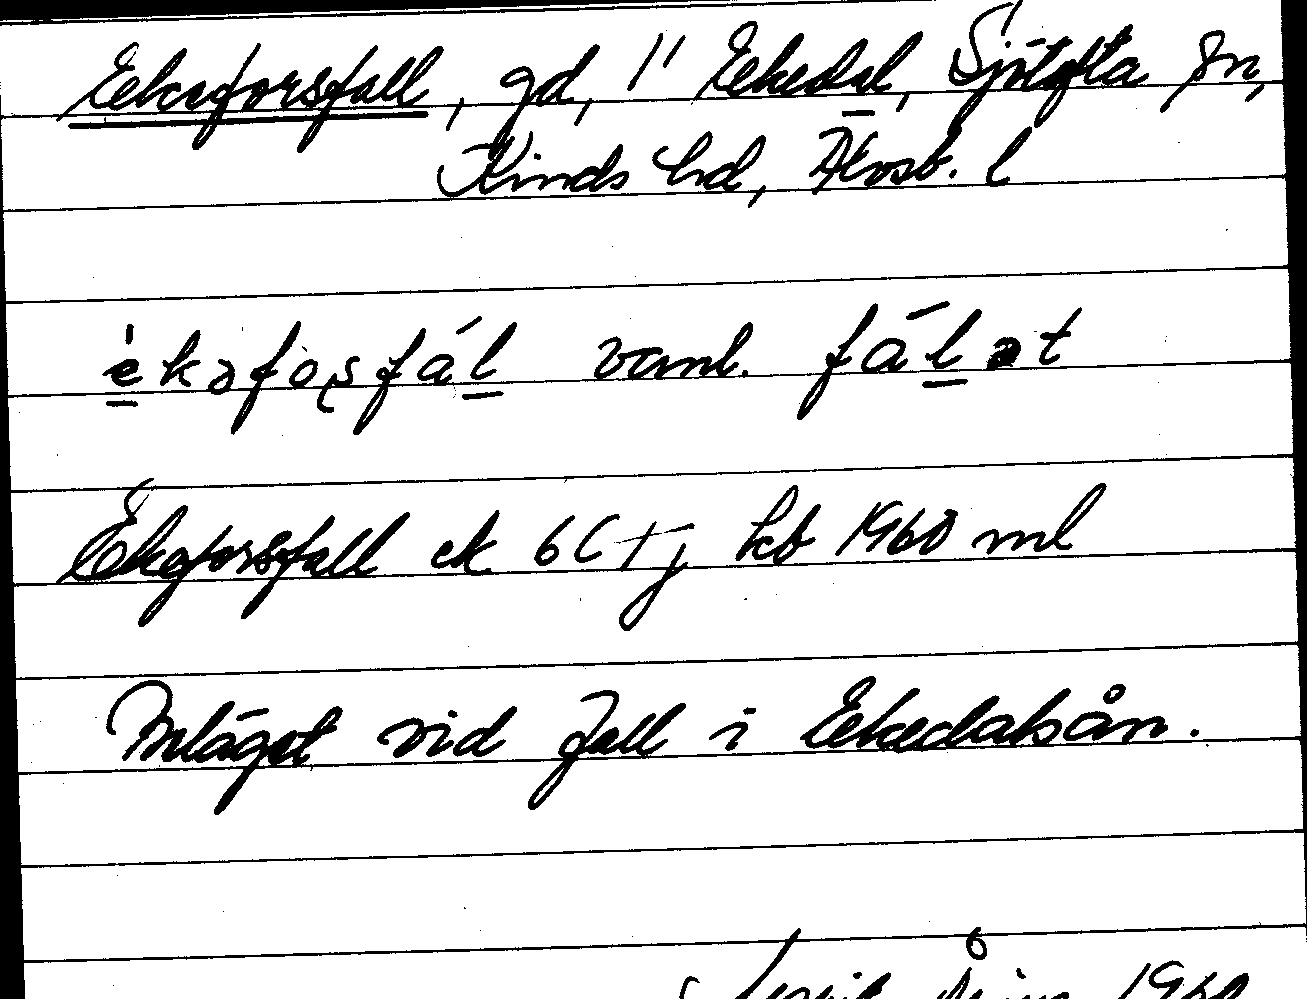 Eekeforsfall, gd, 1" Eekedal, Sjötofta sn,
Kinds hd, Älvsb. l
èkəfo̜sfál vanl. fálət
Ekforsfall ek 6C+j kb 1960 ml
Beläget vid fall i Eekedalsån.
1960